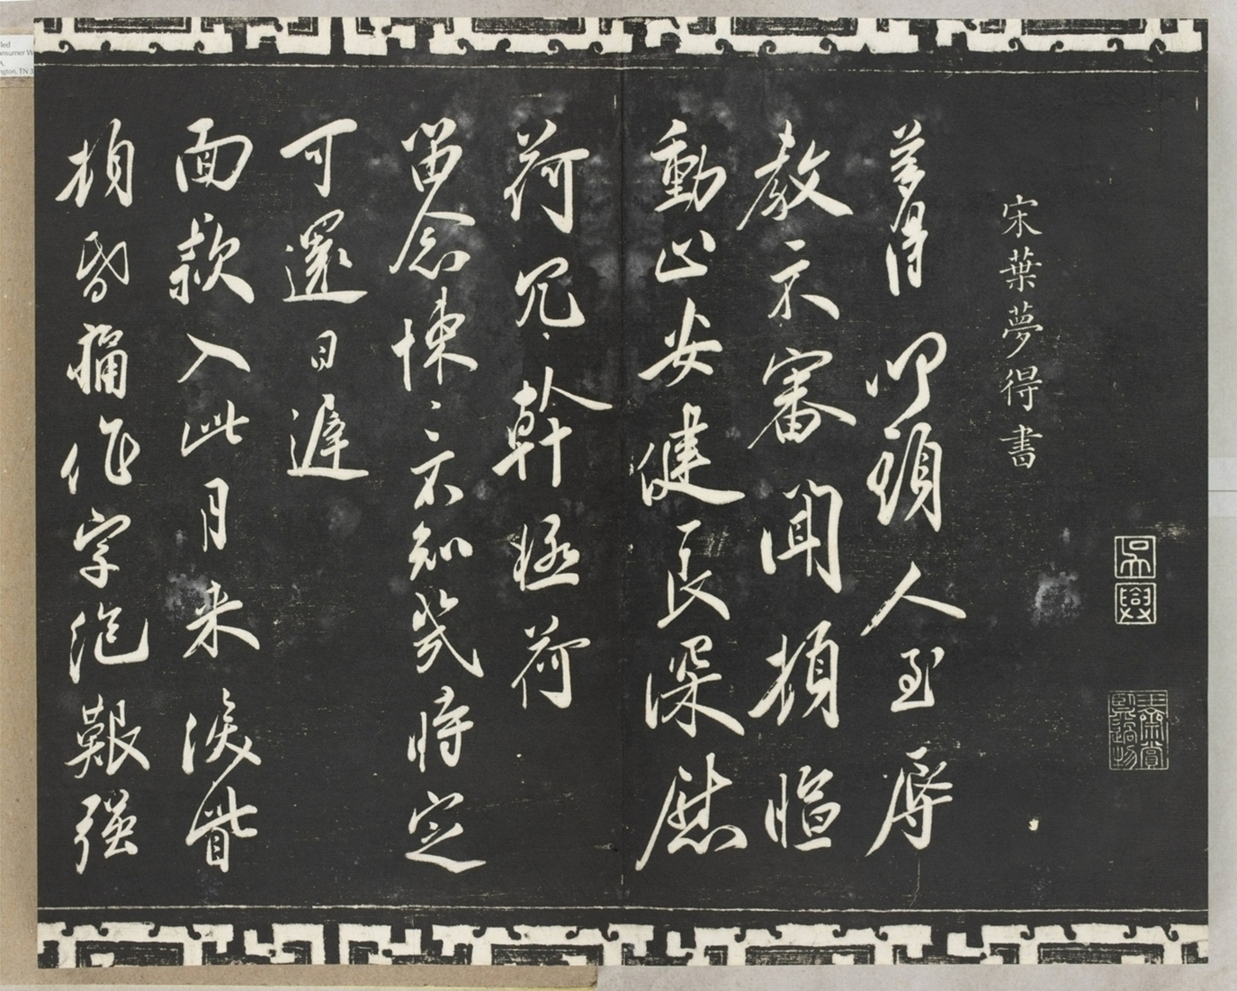 宋葉夢得書
夢得叩頭人至辱
教示審聞頓
動止安健良深慰
荷冗幹極荷
留念悚悚不知幾時定
可還日遲
面款入此月來淚眥
頓昏痛作字絕艱強
吳興